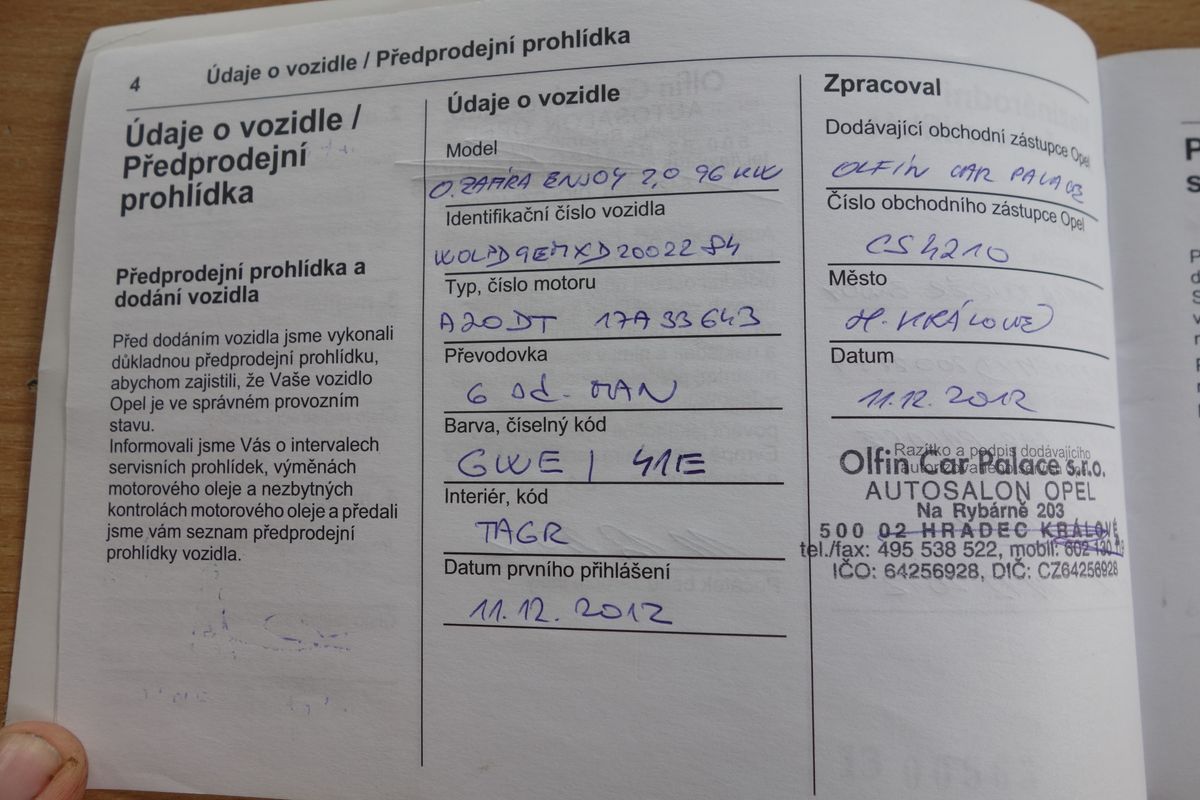 4
Údaje o vozidle / Předprodejní prohlídka
Údaje o vozidle /
Předprodejní
prohlídka
Předprodejní prohlídka a
dodání vozidla
Před dodáním vozidla jsme vykonali
důkladnou předprodejní prohlídku,
abychom zajistili, že Vaše vozidlo
Opel je ve správném provozním
stavu.
Informovali jsme Vás o intervalech
servisních prohlídek, výměnách
motorového oleje a nezbytných
kontrolách motorového oleje a předali
jsme vám seznam předprodejní
prohlídky vozidla.
Údaje o vozidle
Model
O. ZAFIRA ENJOY 2,0 96 KW
Identifikační číslo vozidla
W0LPD9EMXD2002284
Typ, číslo motoru
A20DT 17A33643
Převodovka
6 st. MAN
Barva, číselný kód
GWE / 41E
Interiér, kód
TAGR
Datum prvního přihlášení
11.12.2012
Zpracoval
Dodávající obchodní zástupce Opel
OLFIN CAR PALACE
Číslo obchodního zástupce Opel
CS4210
Město
H. KRÁLOVÉ
Datum
11.12.2012
Razítko a podpis dodávajícího
Olfin Car Palace s.r.o.
AUTOSALON OPEL
Na Rybárně 203
500 02 HRADEC KRÁLOVÉ
tel./fax: 495 538 522, mobil: 602
IČO: 64256928, DIČ: CZ64256928